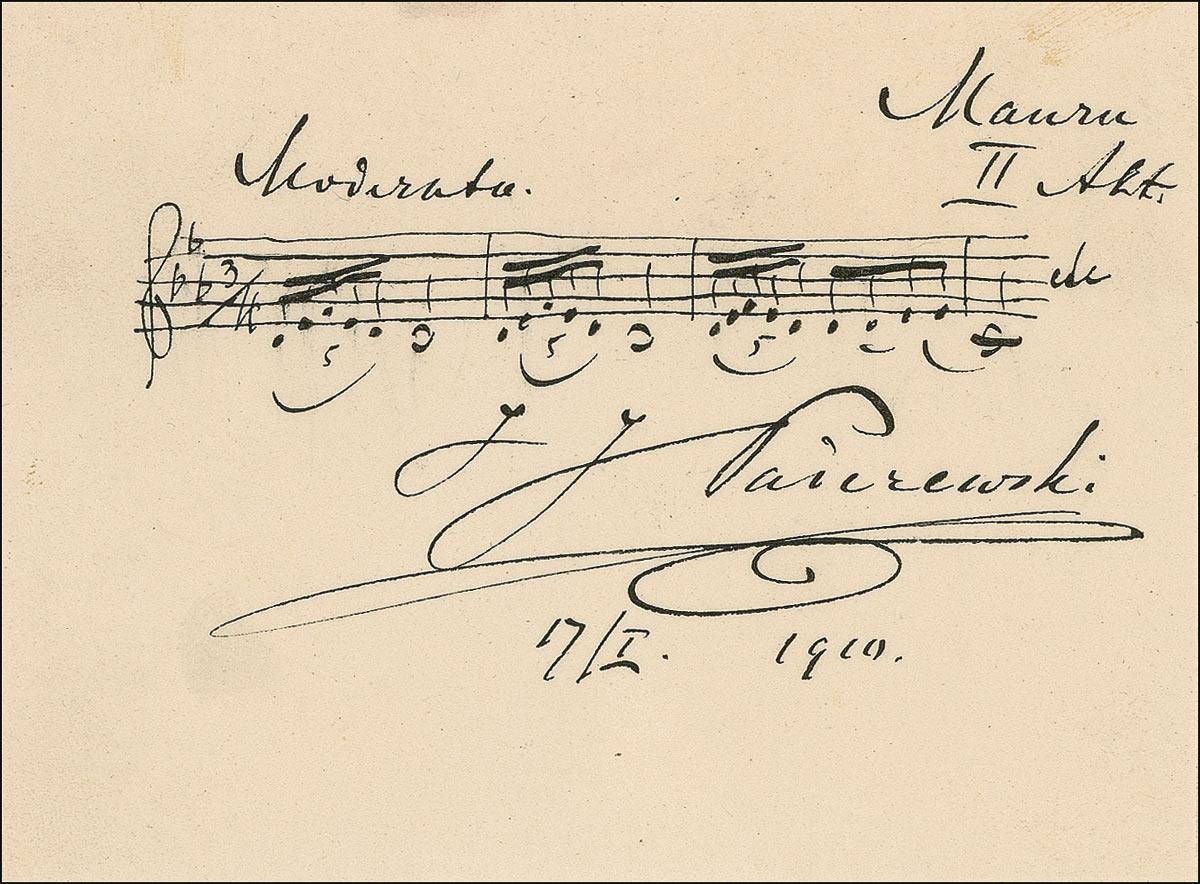 Manru
II Akt.
Moderato.
3/4
etc
5 5 5
J J Paderewski
17/I. 1910.